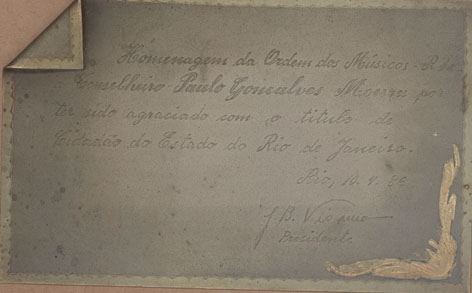 Homenagem da Ordem dos Músicos
Conselheiro Paulo Gonsalves por
ter sido agraciado com o titulo de
Cidadão do Estado do Rio de Janeiro.
Rio,
J. B.
Presidente